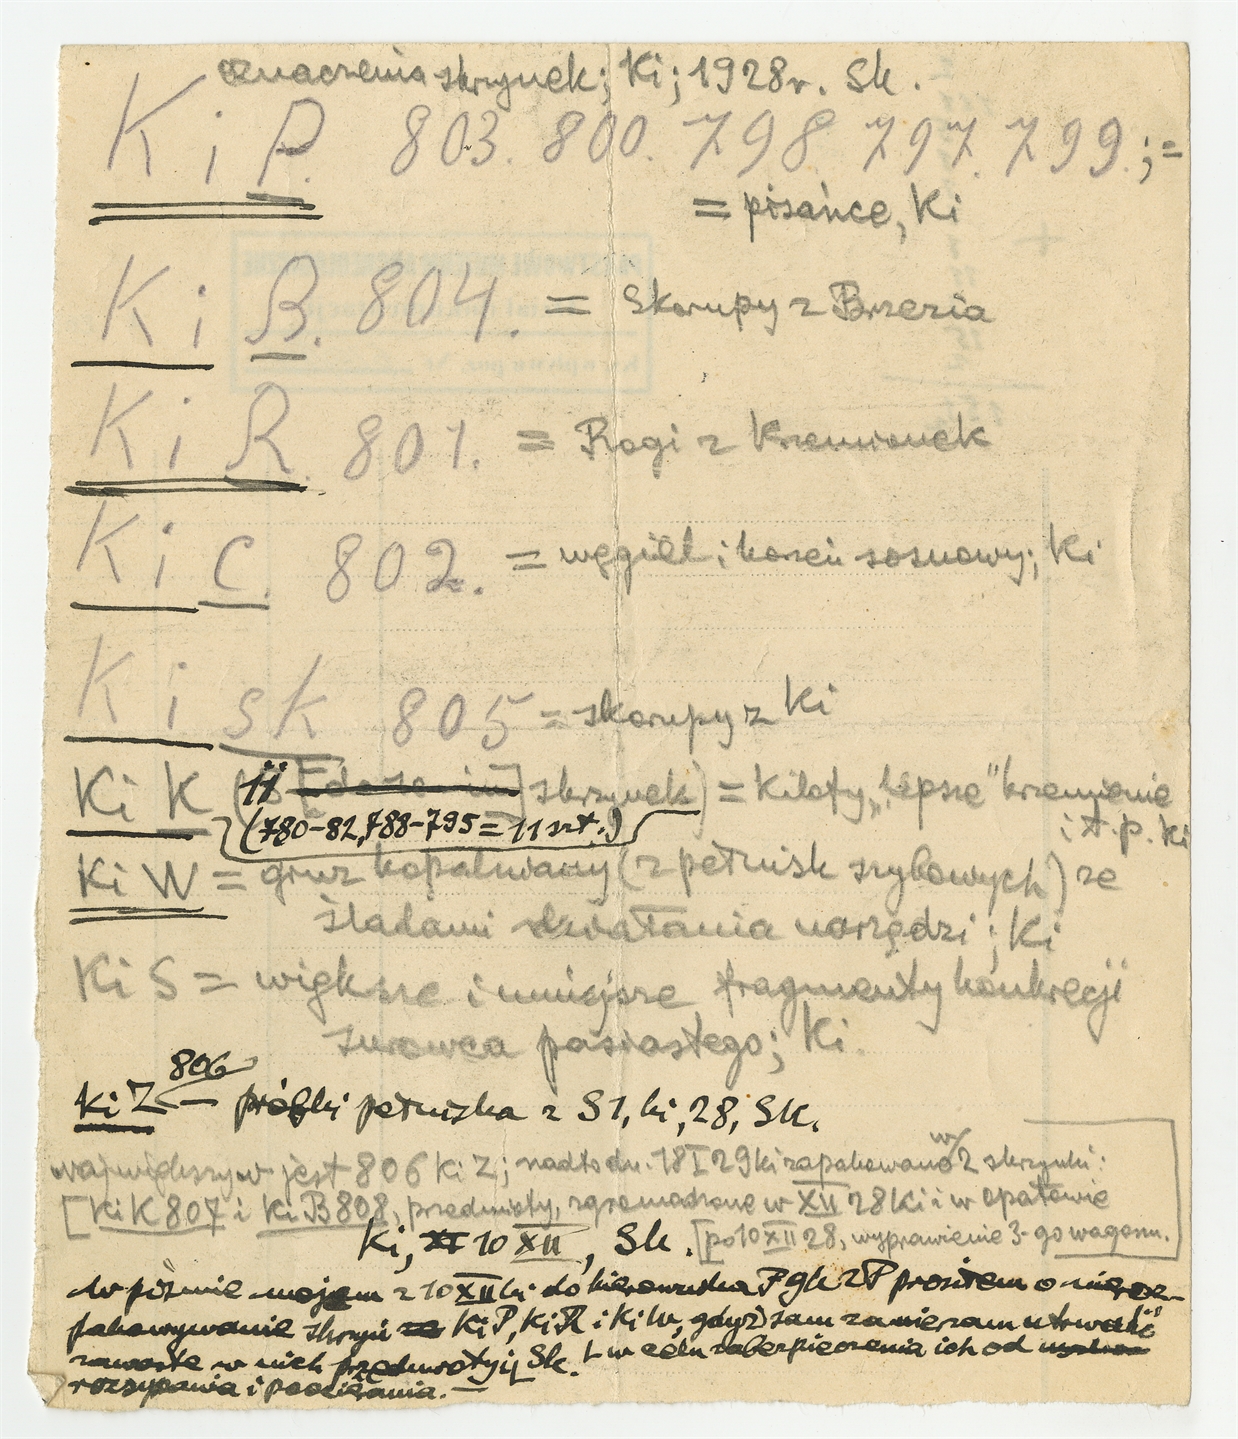 oznaczenia skrzynek; Ki; 1928r. Sk.
Ki P. 803. 800. 798. 797. 799.; =
= pisańce, Ki
Ki B. 804. = Skorupy z Brzezia
Ki R. 801. = Rogi z Krzemionek
Ki C. 802. = węgiel i korzeń sosnowy; Ki
Ki sk 805 = skorupy z Ki
Ki K (11 skrzynek) = Kilofy, „lepsze" krzemienie
i t.p. Ki
(780-82, 788-795 = 11 szt.)
Ki W = gruz kopalniany (z pełnisk szybowych) ze
śladami działania narzędzi; Ki
Ki S = większe i mniejsze fragmenty konkrecji
surowca pasiastego; Ki.
806
Ki Z — próbki pełniska z S1, Ki, 28, Sk.
największym jest 806 Ki Z; nadto dn. 18 I 29 Ki zapakowano w 2 skrzynki:
[Ki K 807 i Ki B 808, przedmioty, zgromadzone w XII 28 Ki i w Opatowie
[po 10 XII 28, wyprawienie 3-go wagonu.
Ki, 10 XII, Sk.
w piśmie mojem z 10 XII Ki do kierownika PGK ZP prosiłem o nieroz-
pakowywanie skrzyń Ki P, Ki R i Ki W, gdyż sam zamierzam utrwalić
zawarte w nich przedmioty; Sk. w celu zabezpieczenia ich od
rozsypania i pocierania. —